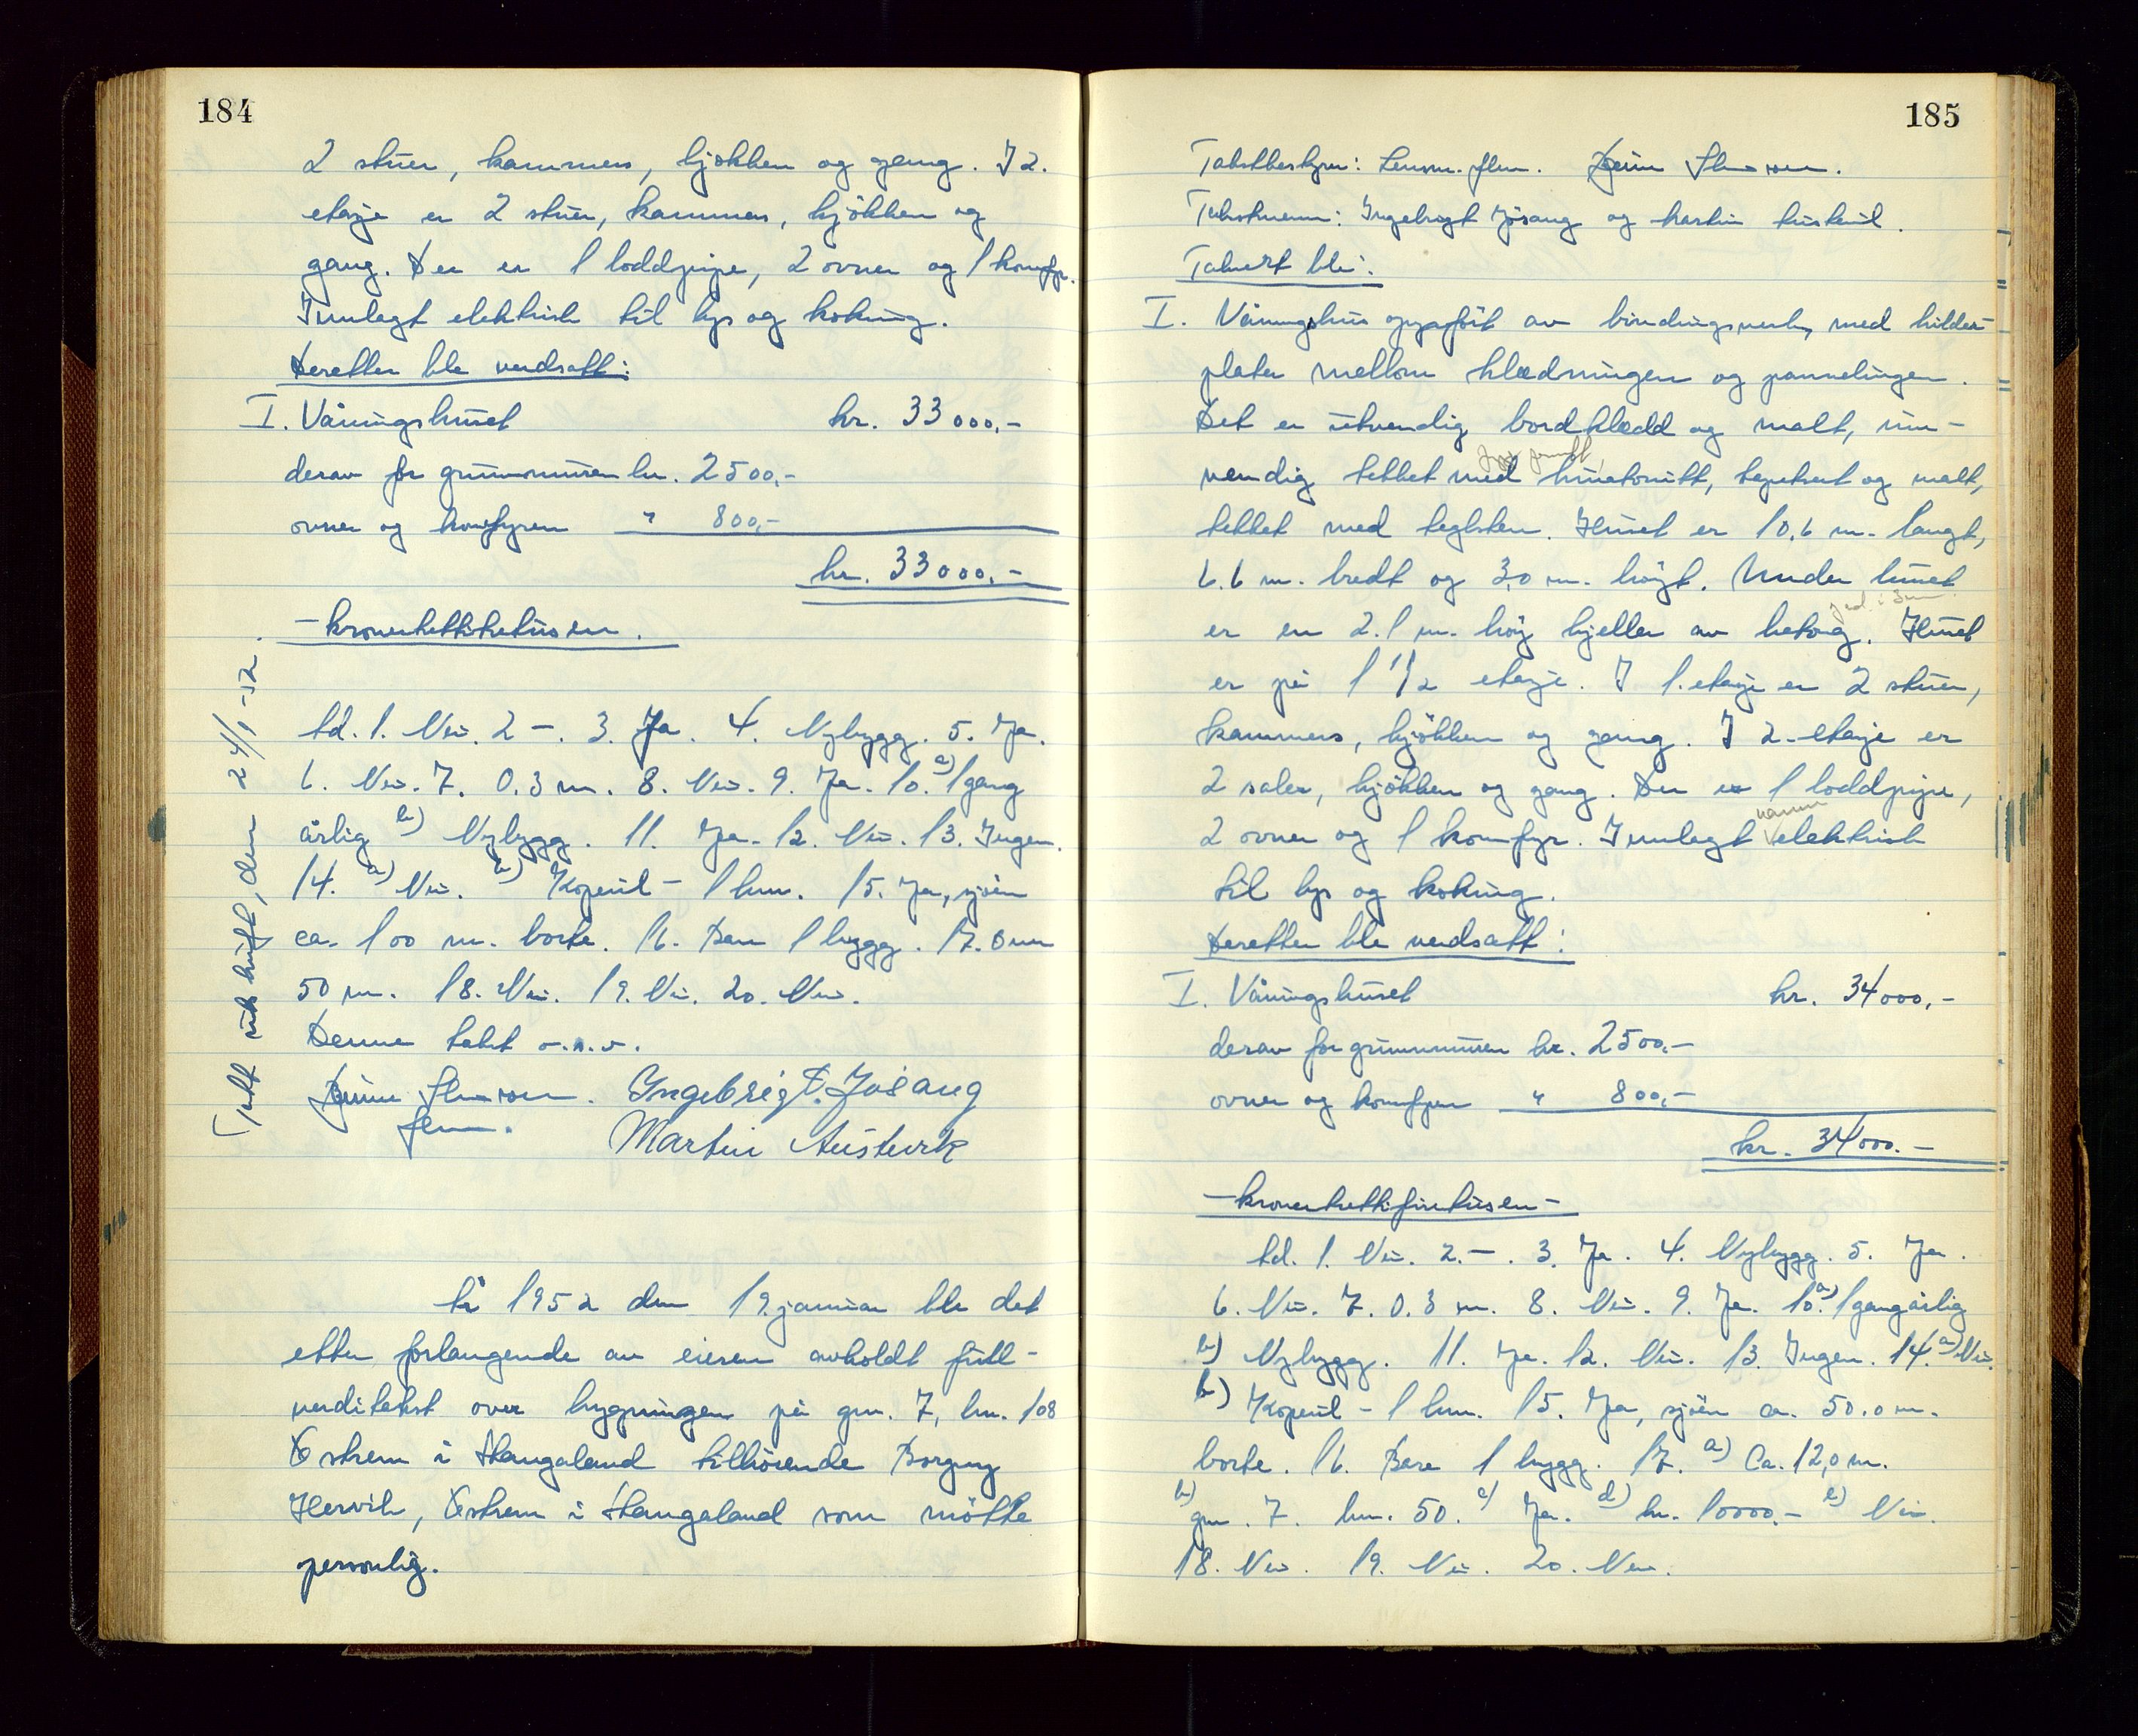 184
2 stuer, kammers, kjøkken og gang. I 2.
etasje er 2 stuer, kammers, kjøkken og
gang. Der er 1 loddpipe, 2 ovner og 1 komfyr.
Innlagt elektrisk til lys og koking.
Deretter ble verdsatt:
I. Våningshuset kr. 33000,-
derav for grunnmuren kr. 2500,-
ovner og komfyren " 800,-
kr. 33000.-
-kronertrettitretusen.
td. 1. Nei. 2 -. 3. Ja. 4. Nybygg. 5. Ja.
6. Nei. 7. 0.3 m. 8. Nei. 9. Ja. 10. a) 1 gang
årlig b) Nybygg. 11. Ja. 12. Nei. 13. Ingen.
14. a) Nei. b) Kopervik - 1 km. 15. Ja, sjøen
ca. 100 m. borte. 16. Bare 1 bygg. 17. Over
50 m. 18. Nei. 19. Nei. 20. Nei.
Denne takst o.s.v.
Ingebrigt. Jøsang
Martin Austevik
Tatt utskrift, den 24/1-52.
År 1952 den 19. januar ble det
etter forlangende av eieren avholdt full-
verditakst over bygningen på gnr. 7, bnr. 108
Østrem i Skangaland tilhørende Borgny
Hervik, Østrem i Skangaland som møtte
personlig.
185
Takstbestyrer: Lensm. flm.
Takstmenn: Ingebrigt Jøsang og Martin Austevik.
Taksert ble:
I. Våningshus oppført av bindingsverk, med hilder-
plater mellom klædningen og pannelingen.
Det er utvendig bordklædd og malt, inn-
vendig tettet med huntonitt, tapetsert og malt,
tettet med teglsten. Huset er 10.6 m. langt,
6.6 m. bredt og 3,0 m. høyt. Under huset
er en 2.1 m. høy kjeller av betong. Huset
er på 1 1/2 etasje. I 1. etasje er 2 stuer,
kammers, kjøkken og gang. I 2. etasje er
2 saler, kjøkken og gang. Der er 1 loddpipe,
vann
2 ovner og 1 komfyr. Innlagt elektrisk
til lys og koking.
Deretter ble verdsatt:
I. Våningshuset kr. 34000,-
derav for grunnmuren kr. 2500.-
ovner og komfyren " 800,-
kr. 34000.-
-kronertrettifiretusen-
td. 1. Nei. 2. -. 3. Ja. 4. Nybygg. 5. Ja.
6. Nei. 7. 0.3 m. 8. Nei. 9. Ja. 10. a) 1 gang årlig
b) Nybygg. 11. Ja. 12. Nei. 13. Ingen. 14. a) Nei.
b) Kopervik - 1 km. 15. Ja, sjøen ca. 50.0 m.
borte. 16. Bare 1 bygg. 17. a) Ca. 12,0 m.
b) gnr. 7. bnr. 50. c) Ja. d) kr. 10000.- e) Nei.
18. Nei. 19. Nei. 20. Nei.